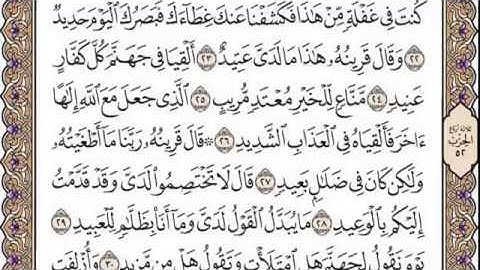 كُنتَ فِي غَفْلَةٍ مِّنْ هَٰذَا فَكَشَفْنَا عَنكَ غِطَآءَكَ فَبَصَرُكَ ٱلْيَوْمَ حَدِيدٌ
٢٢ وَقَالَ قَرِينُهُۥ هَٰذَا مَا لَدَىَّ عَتِيدٌ ٢٣ أَلْقِيَا فِي جَهَنَّمَ كُلَّ كَفَّارٍ
عَنِيدٍ ٢٤ مَّنَّاعٍ لِّلْخَيْرِ مُعْتَدٍ مُّرِيبٍ ٢٥ ٱلَّذِى جَعَلَ مَعَ ٱللَّهِ إِلَٰهًا
ءَاخَرَ فَأَلْقِيَاهُ فِي ٱلْعَذَابِ ٱلشَّدِيدِ ٢٦ ۞ قَالَ قَرِينُهُۥ رَبَّنَا مَآ أَطْغَيْتُهُۥ
وَلَٰكِن كَانَ فِي ضَلَٰلٍۭ بَعِيدٍ ٢٧ قَالَ لَا تَخْتَصِمُوا۟ لَدَىَّ وَقَدْ قَدَّمْتُ
إِلَيْكُم بِٱلْوَعِيدِ ٢٨ مَا يُبَدَّلُ ٱلْقَوْلُ لَدَىَّ وَمَآ أَنَا۠ بِظَلَّٰمٍ لِّلْعَبِيدِ ٢٩
يَوْمَ نَقُولُ لِجَهَنَّمَ هَلِ ٱمْتَلَأْتِ وَتَقُولُ هَلْ مِن مَّزِيدٍ ٣٠ وَأُزْلِفَتِ
ثلاثة أرباع
الحزب
٥٢